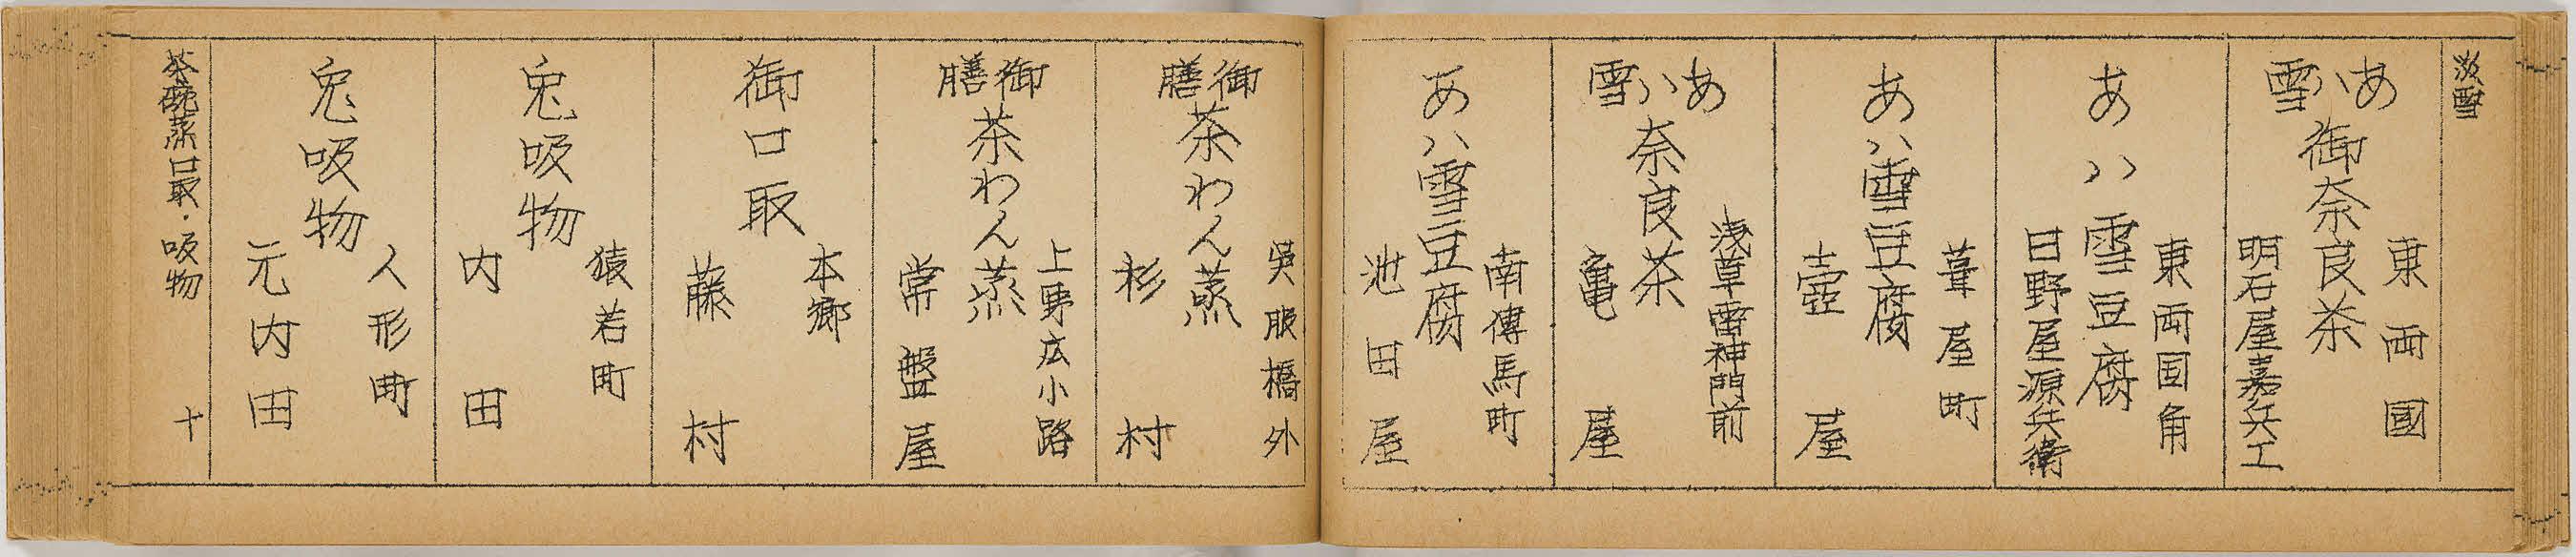 淡雪
東両國
あハ雪
御奈良茶
明石屋嘉兵エ
東両国角
あハ雪豆腐
日野屋源兵衛
葺屋町
あハ雪豆腐
壺屋
浅草雷神門前
あハ雪
奈良茶
亀屋
南傳馬町
あハ雪豆腐
池田屋
呉服橋外
御膳
茶わん蒸
杉村
上野広小路
御膳
茶わん蒸
常盤屋
本郷
御口取
藤村
猿若町
兎吸物
内田
人形町
兎吸物
元内田
茶碗蒸口取・吸物
十